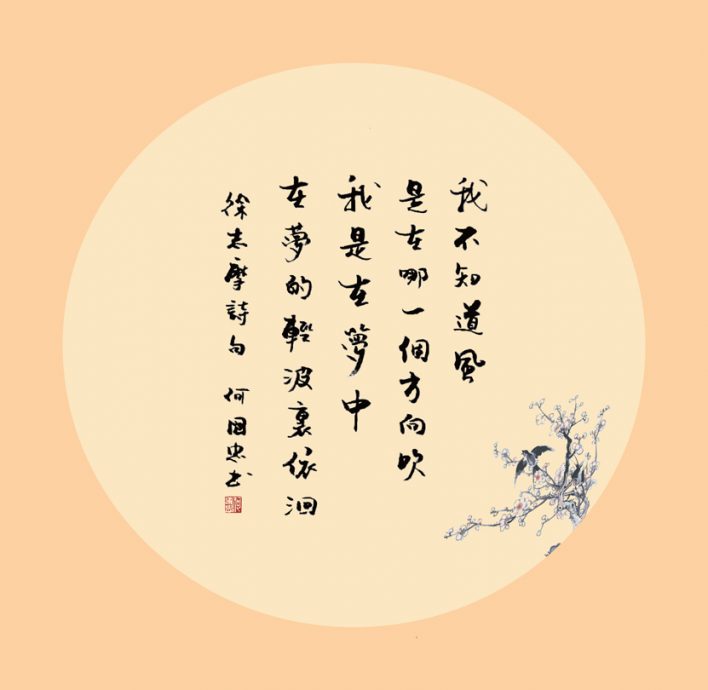 我不知道風
是在哪一個方向吹
我是在夢中
在夢的輕波裏依洄
徐志摩詩句 何國忠书